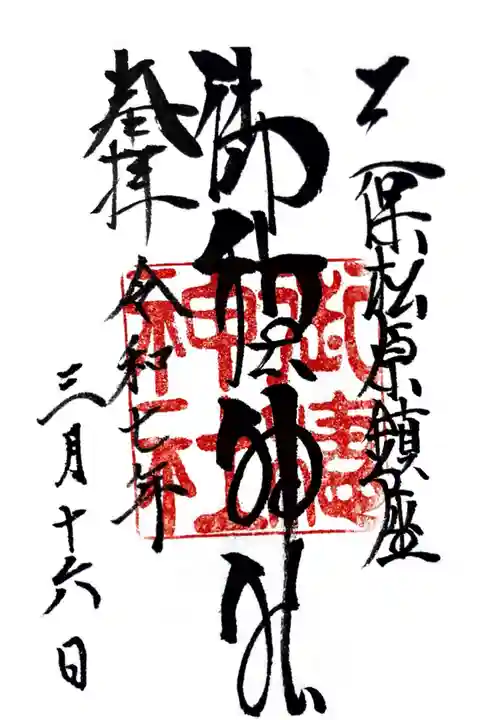 三保松原鎮座
御穂神社
奉拝
令和七年
三月十六日
御穂
神社